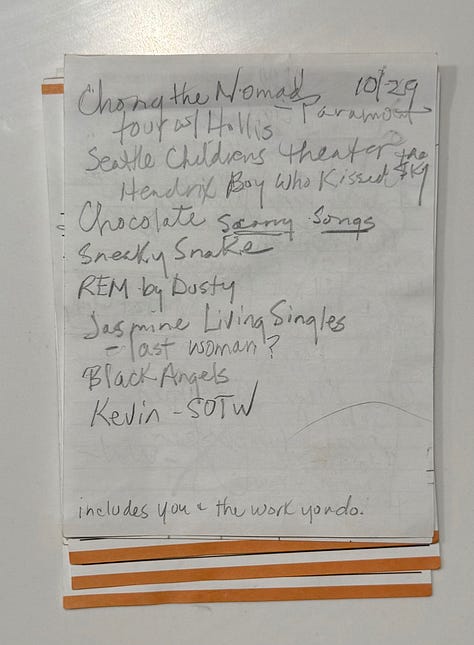 Chong the Nomad 10/29
- Paramount
tour w/ Hollis
Seattle Childrens theater the
Hendrix Boy Who Kissed Sky
Chocolate Songs
Sneaky Snake
REM by Dusty
Jasmine Living Singles
- last woman?
Black Angels
Kevin - SOTW
includes you + the work you do.